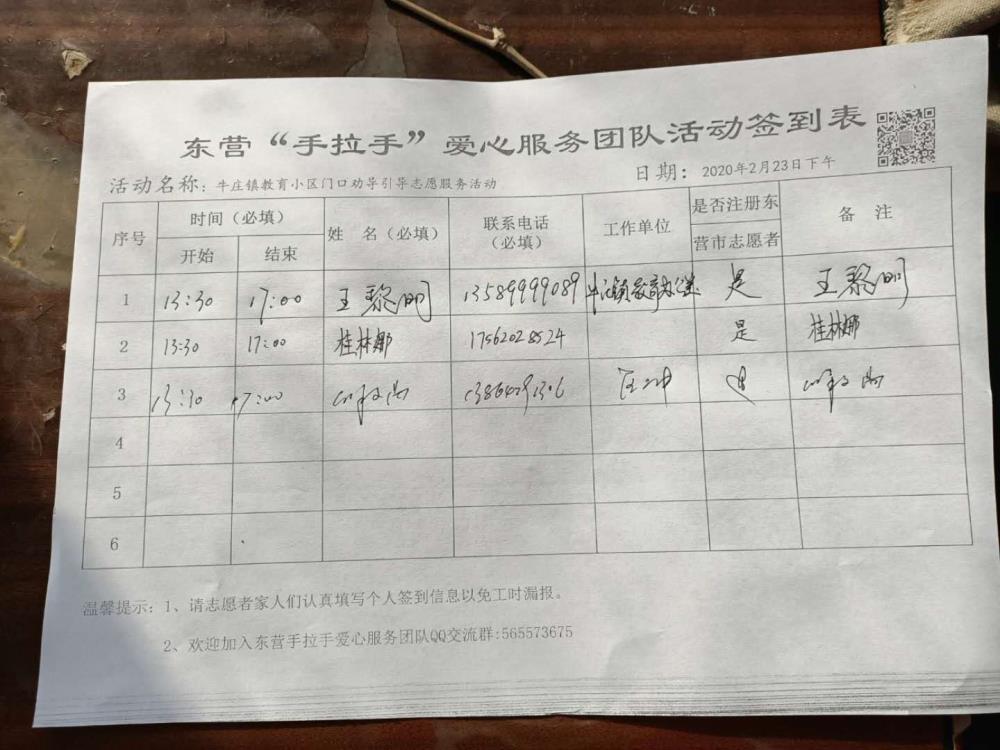 东营“手拉手”爱心服务团队活动签到表
日期：2020年2月23日下午
活动名称：牛庄镇教育小区门口劝导引导志愿服务活动
序号 时间（必填） 姓 名（必填） 联系电话（必填） 工作单位 是否注册东营市志愿者 备 注
开始 结束
1 13:30 17:00 王黎明 13589999089 牛庄镇教育办公室 是 王黎明
2 13:30 17:00 桂林娜 17562028524 是 桂林娜
3 13:30 17:00 是
4
5
6
温馨提示：1、请志愿者家人们认真填写个人签到信息以免工时漏报。
2、欢迎加入东营手拉手爱心服务团队QQ交流群:565573675